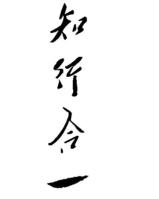 知行合一